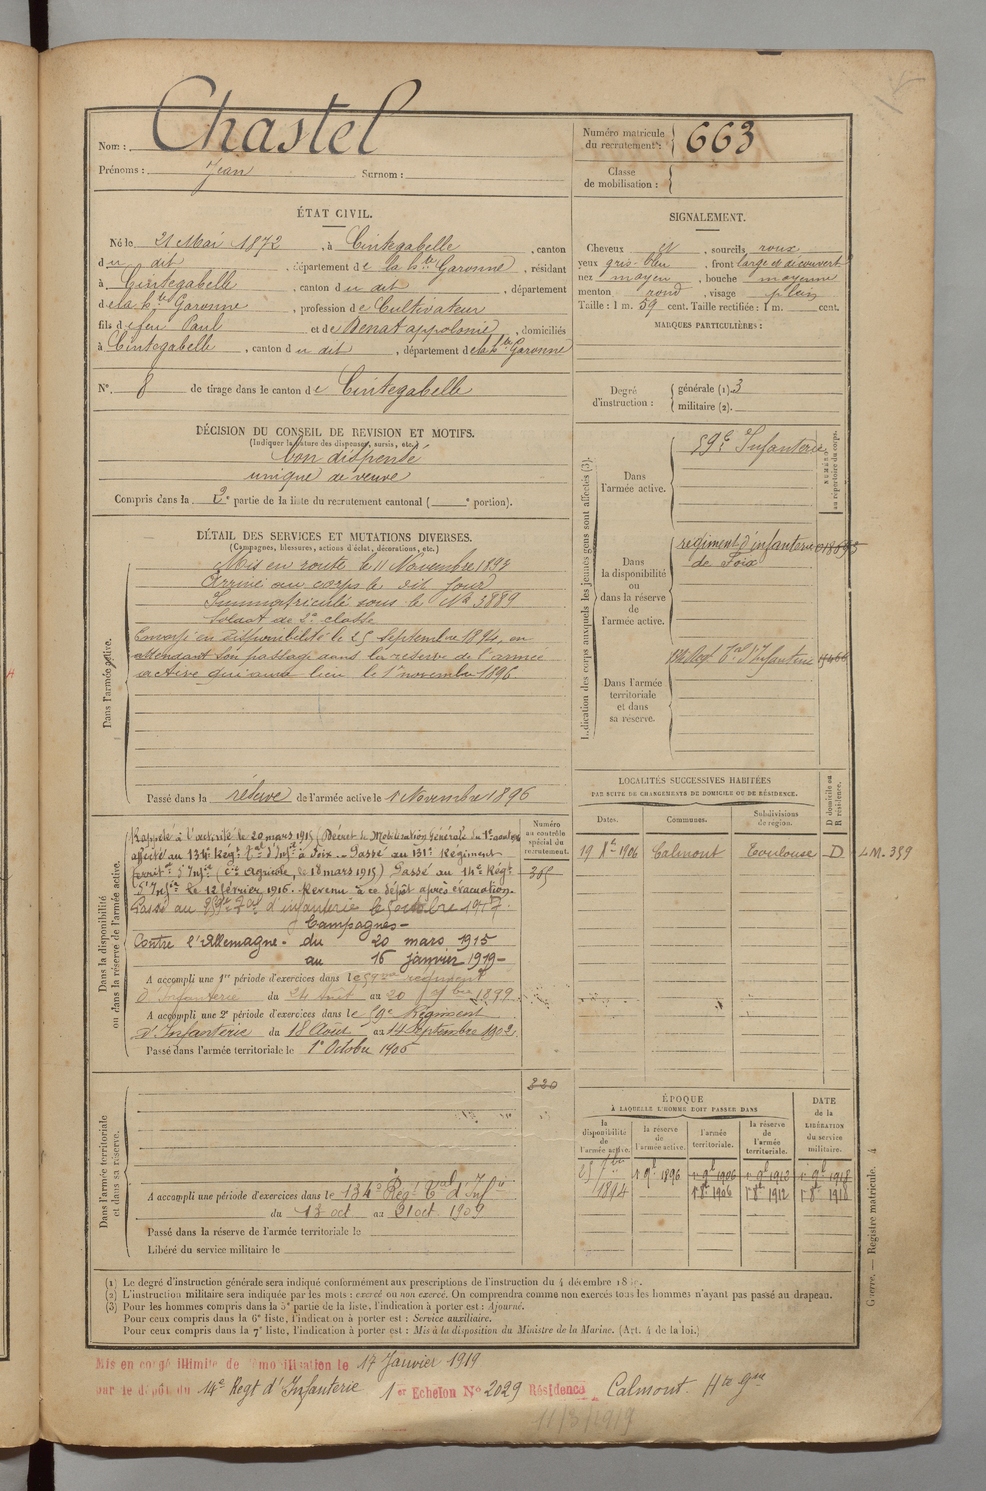 Nom : Chastel
Prénoms : Jean Surnom :
Numéro matricule du recrutement : 663
Classe de mobilisation :
ÉTAT CIVIL.
Né le 21 Mai 1872, à Cintegabelle, canton
du dit, département de la hte Garonne, résidant
à Cintegabelle, canton du dit, département
de la hte Garonne, profession de Cultivateur
fils de feu Paul et de Benat appolonie, domiciliés
à Cintegabelle, canton du dit, département de la hte Garonne
N° 8 de tirage dans le canton de Cintegabelle
SIGNALEMENT.
Cheveux et, sourcils roux
yeux gris-bleu, front large et découvert
nez moyen, bouche moyenne
menton rond, visage plein
Taille : 1 m. 59 cent. Taille rectifiée : 1 m. cent.
MARQUES PARTICULIÈRES :
Degré d'instruction : générale (1). 3
militaire (2).
DÉCISION DU CONSEIL DE REVISION ET MOTIFS.
(Indiquer la nature des dispenses, sursis, etc.)
bon dispensé
unique de veuve
Compris dans la 2e partie de la liste du recrutement cantonal ( e portion).
DÉTAIL DES SERVICES ET MUTATIONS DIVERSES.
(Campagnes, blessures, actions d'éclat, décorations, etc.)
Dans l'armée active.
Mis en route le 11 Novembre 1893
Arrivé au corps le dit jour
Immatriculé sous le N° 3889
Soldat de 2e classe
Envoyé en Disponibilité le 25 Septembre 1894, en
attendant son passage dans la réserve de l'armée
active qui aura lieu le 1er novembre 1896
Passé dans la réserve de l'armée active le 1 Novembre 1896
Indication des corps auxquels les jeunes gens sont affectés (3).
NUMÉRO au répertoire du corps.
Dans l'armée active.
59e d'Infanterie
Dans la disponibilité ou dans la réserve de l'armée active.
regiment d'infanterie
de Foix
Dans l'armée territoriale et dans sa réserve.
134e Regt Tal d'Infanterie
LOCALITÉS SUCCESSIVES HABITÉES
PAR SUITE DE CHANGEMENTS DE DOMICILE OU DE RÉSIDENCE.
Dates. Communes. Subdivisions de région. D domicile ou R résidence.
19 Xbre 1906 Calmont Toulouse D LM. 359
Dans la disponibilité ou dans la réserve de l'armée active.
Numéro au contrôle spécial du recrutement.
365
Rappelé à l'activité le 20 mars 1915 (Décret de Mobilisation Générale du 1er août 1914)
affecté au 134e Régt Tal d'Inf. à Foix. Passé au 131e Régiment
territ. d'Infie (Cie Agricole, le 18 mars 1915) Passé au 14e Régt
d'Infie le 12 février 1916. Revenu à ce dépôt après évacuation.
Passé au d'infanterie le 5 octobre 1917.
Campagnes -
Contre l'Allemagne - du 20 mars 1915
au 16 janvier 1919 -
A accompli une 1re période d'exercices dans le 59e régiment
d'Infanterie du 24 Août au 20 7bre 1899
A accompli une 2e période d'exercices dans le 59e Régiment
d'Infanterie du 18 Aout au 14 Septembre 1902
Passé dans l'armée territoriale le 1er Octobre 1906
Dans l'armée territoriale et dans sa réserve.
220
A accompli une période d'exercices dans le 134e Régt Tal d'Infie
du 13 oct au 21 oct 1909
Passé dans la réserve de l'armée territoriale le
Libéré du service militaire le
ÉPOQUE
À LAQUELLE L'HOMME DOIT PASSER DANS
la disponibilité de l'armée active. la réserve de l'armée active. l'armée territoriale. la réserve de l'armée territoriale. DATE de la LIBÉRATION du service militaire.
25 7bre 1894 1 9bre 1896 1 9bre 1906 1 9bre 1912 1 9bre 1918
1 8bre 1906 1 8bre 1912 1 8bre 1918
Guerre. — Registre matricule. 4
(1) Le degré d'instruction générale sera indiqué conformément aux prescriptions de l'instruction du 4 décembre
(2) L'instruction militaire sera indiquée par les mots : exercé ou non exercé. On comprendra comme non exercés tous les hommes n'ayant pas passé au drapeau.
(3) Pour les hommes compris dans la 5e partie de la liste, l'indication à porter est : Ajourné.
Pour ceux compris dans la 6e liste, l'indication à porter est : Service auxiliaire.
Pour ceux compris dans la 7e liste, l'indication à porter est : Mis à la disposition du Ministre de la Marine. (Art. 4 de la loi.)
Mis en congé illimité de démobilisation le 17 Janvier 1919
par le dépôt du 14e Regt d'Infanterie 1er Echelon N° 2029 Résidence Calmont Hte Gne
11/3/1919